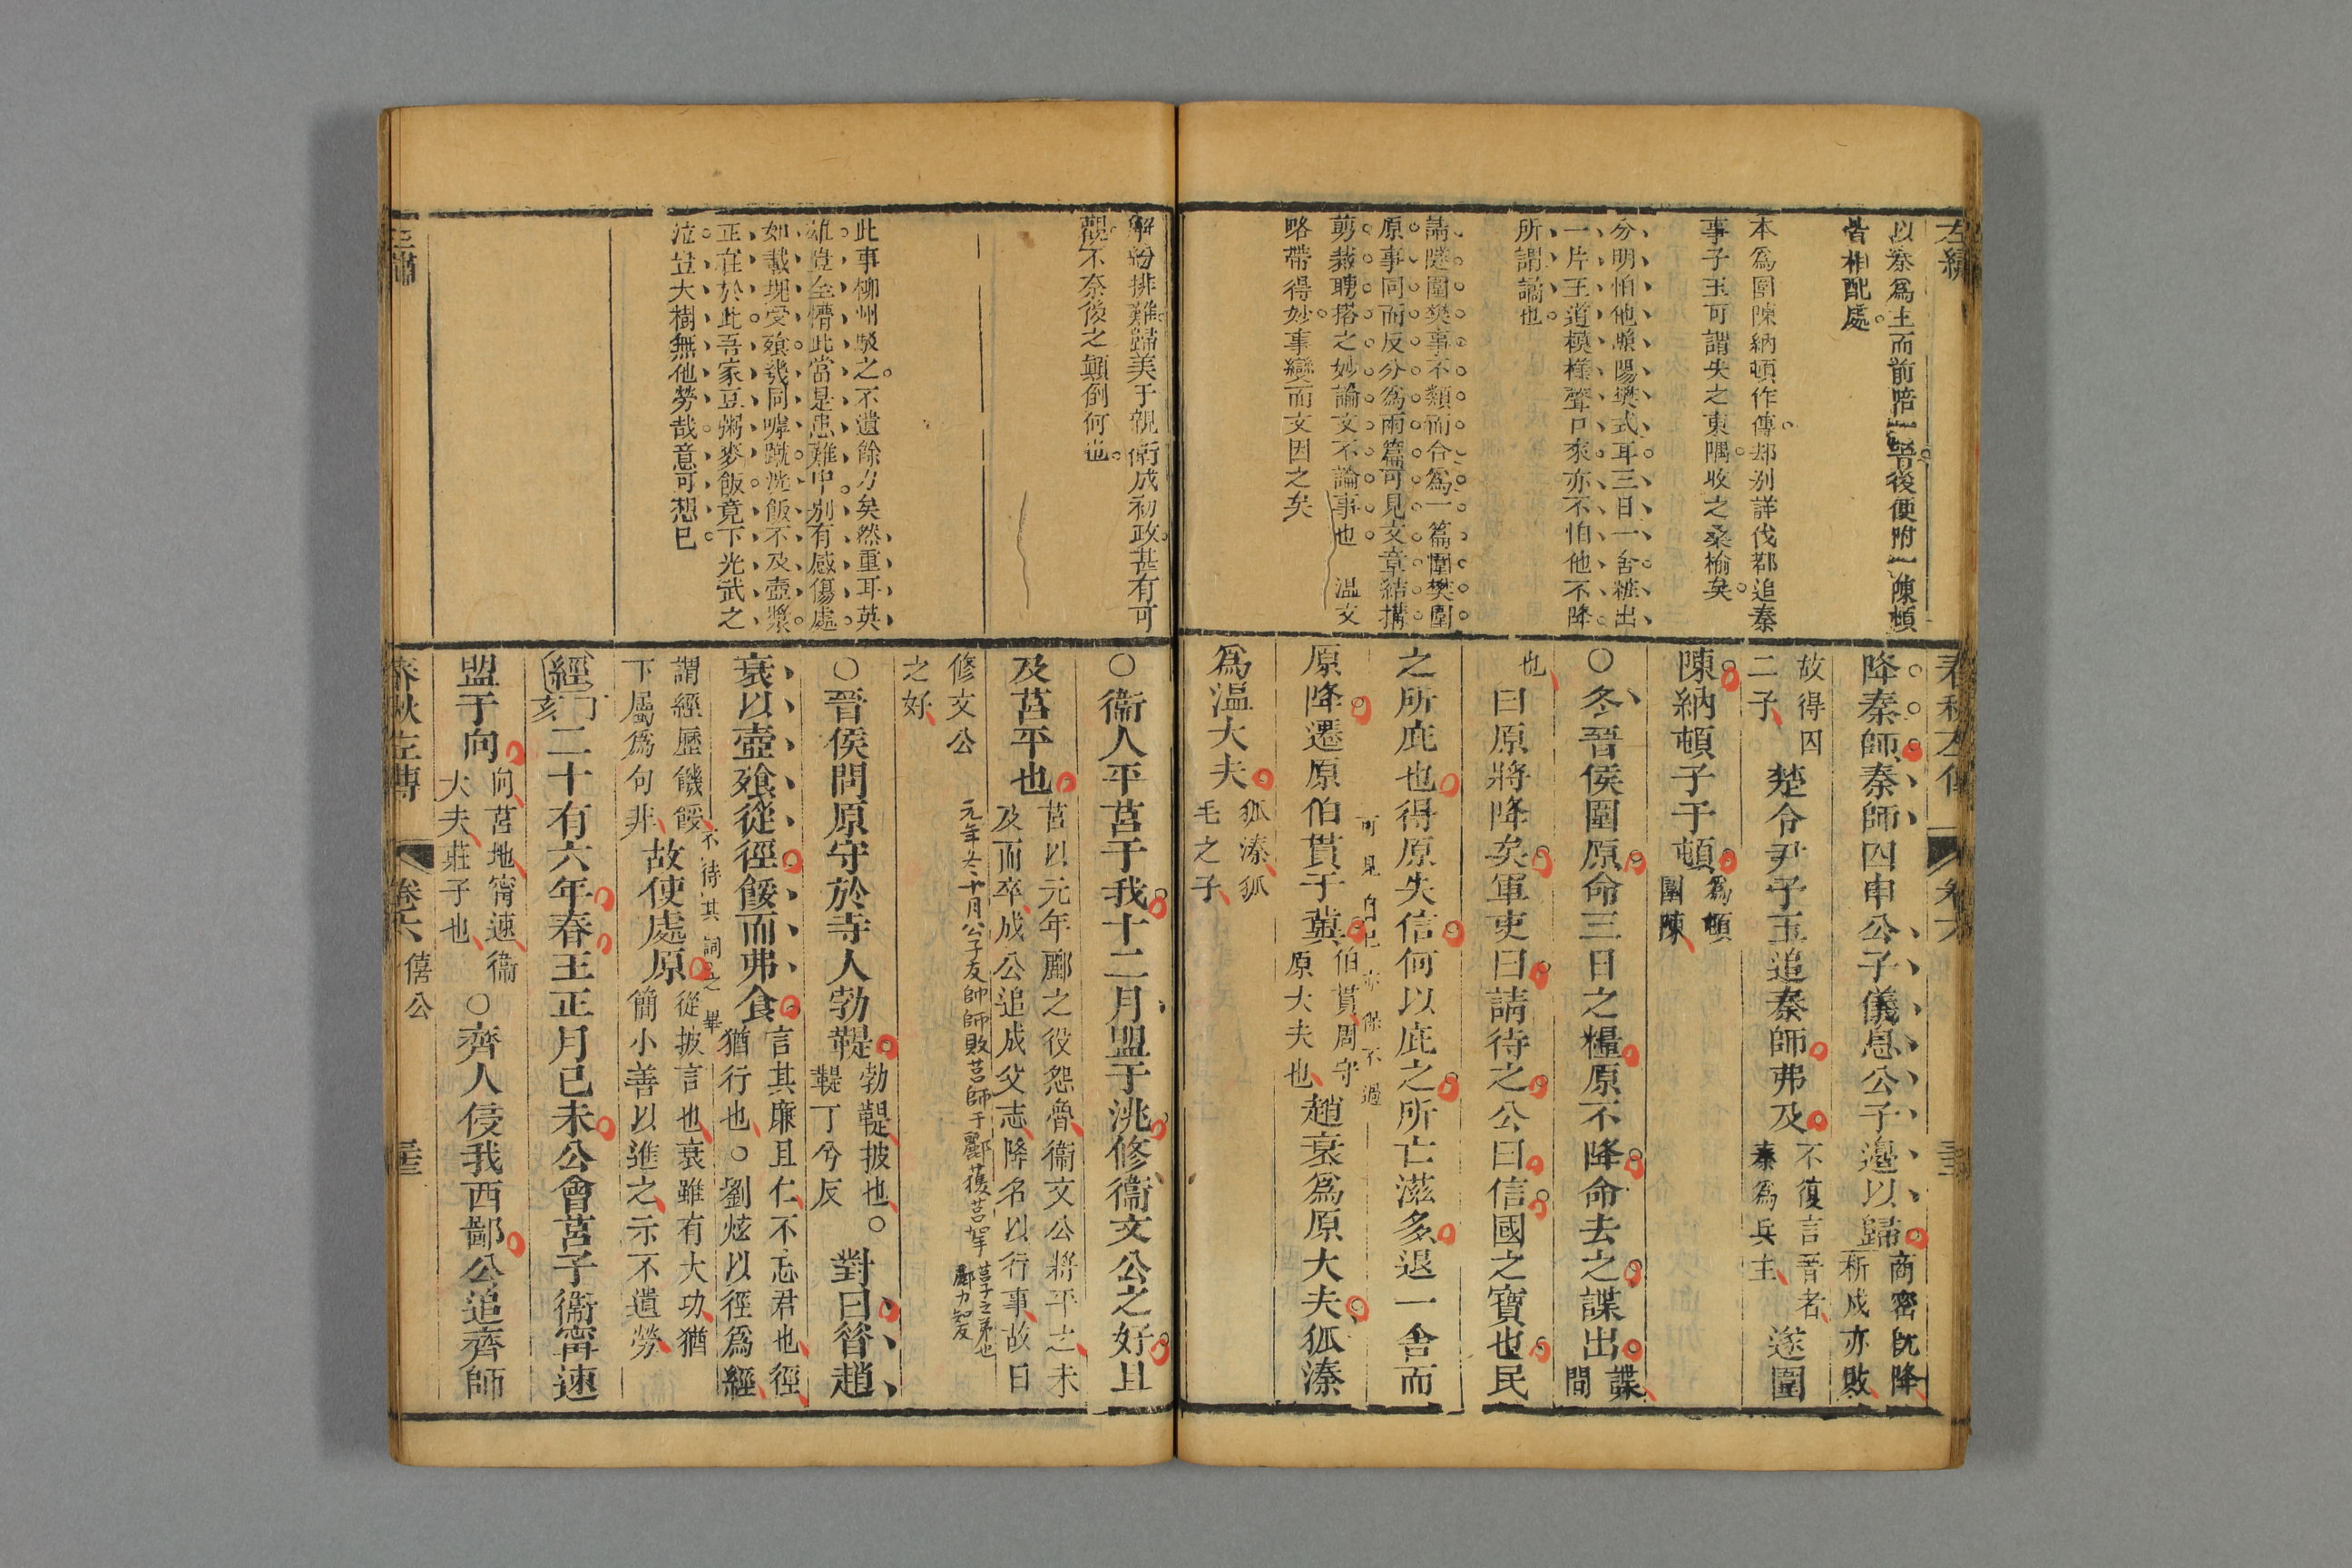 左繡
以秦爲主而前陪一晉後便附一陳頓
皆相配處
本爲圍陳納頓作傳却别詳伐鄀追秦
事子玉可謂失之東隅收之桑榆矣
分明怕他縣陽樊式耳三日一舍粧出
一片王道模樣聲口來亦不怕他不降
所謂譎也
請隧圍樊事不類而合爲一篇圍樊圍
原事同而反分爲兩篇可見文章結搆
剪裁聯搭之妙論文不論事也 温文
略帶得妙事變而文因之矣
春秋左傳
卷六
降秦師秦師囚申公子儀息公子邉以歸商密旣降
析戍亦敗
故得囚
二子楚令尹子玉追秦師弗及不復言晉者
秦爲兵主遂圍
陳納頓子于頓爲頓
圍陳
○冬晉侯圍原命三日之糧原不降命去之諜出諜
間
也曰原將降矣軍吏曰請待之公曰信國之寶也民
之所庇也得原失信何以庇之所亡滋多退一舍而
可見自已亦保不過
原降遷原伯貫于冀伯貫周守
原大夫也趙衰爲原大夫狐溱
爲温大夫狐溱狐
毛之子
解紛排難歸美于親衛成初政甚有可
觀不奈後之顛倒何也
此事柳州駁之不遺餘力矣然重耳英
雄豈全懵此當是患難中别有感傷處
如載塊受飱幾同嘑蹴洗飯不及壺漿
正在於此吾家豆粥麥飯竟下光武之
泣豈大樹無他勞哉意可想已
○衞人平莒于我十二月盟于洮修衞文公之好且
及莒平也莒以元年酈之役怨魯衞文公將平之未
及而卒成公追成父志降名以行事故曰
元年冬十月公子友帥師敗莒師于酈獲莒挐
莒子之弟也
修文公
之好
○晉侯問原守於寺人勃鞮勃鞮披也○
鞮丁兮反對曰昝趙
衰以壺飱從徑餒而弗食言其廉且仁不忘君也徑
猶行也○劉炫以徑爲經
謂經歷饑餒
下屬爲句非
不待其詞之畢
故使處原從披言也衰雖有大功猶
簡小善以進之示不遺勞
經二十有六年春王正月己未公會莒子衞甯速
盟于向向莒地甯速衞
大夫莊子也○齊人侵我西鄙公追齊師
春秋左傳
卷六 僖公